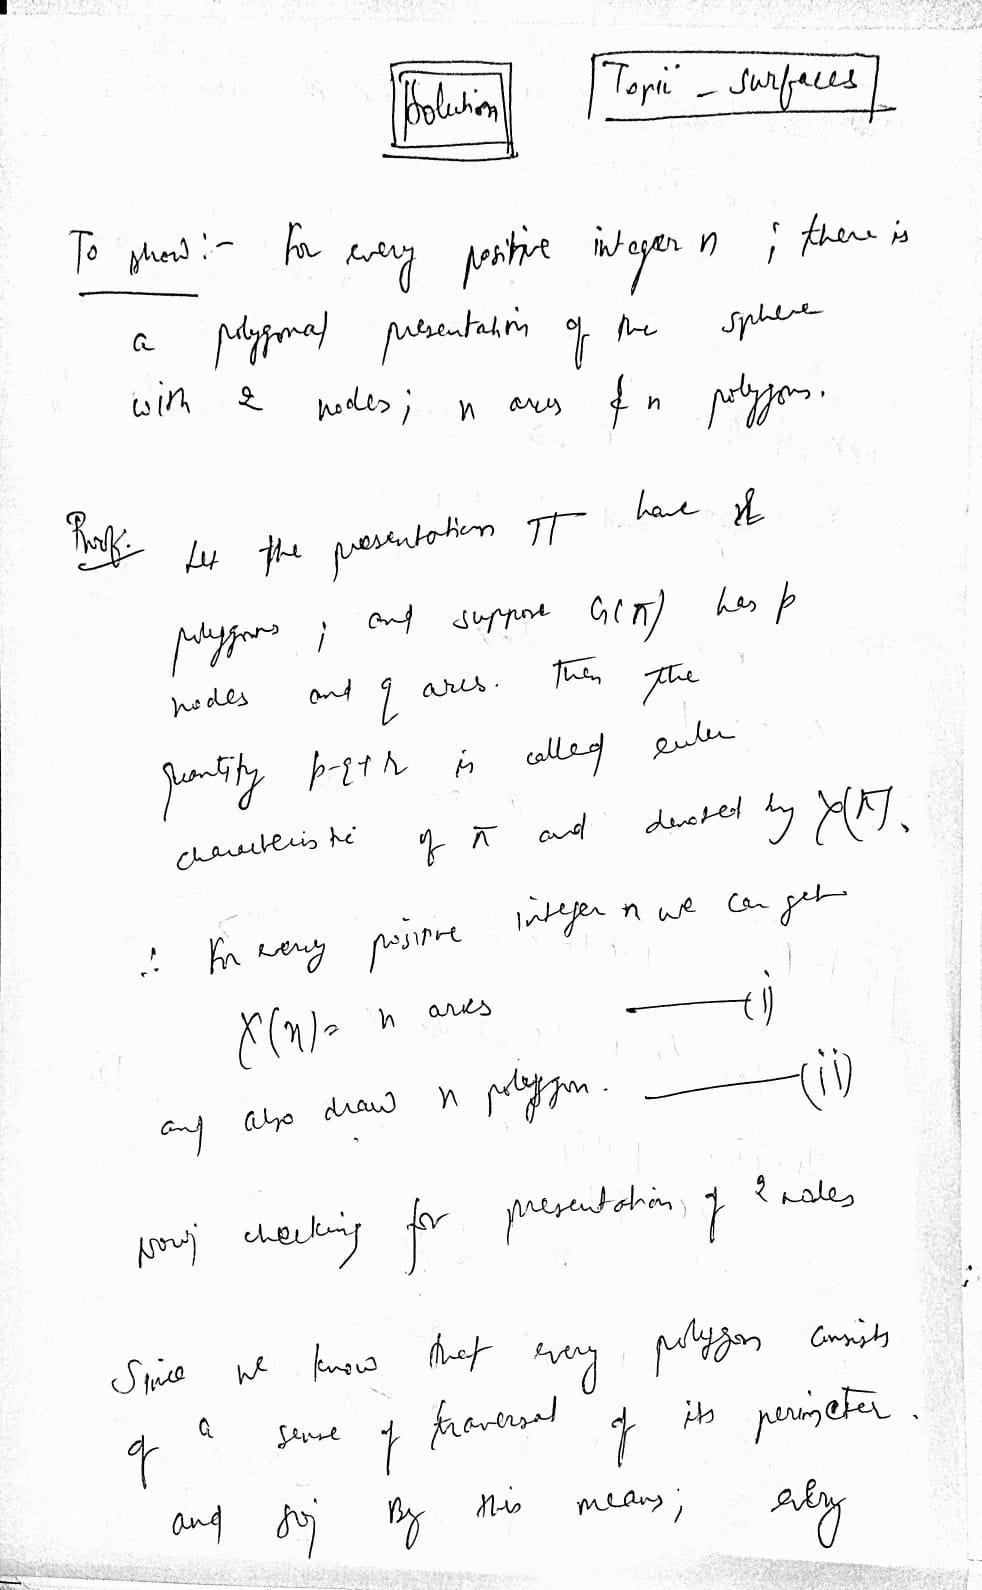 Solution
Topic - surfaces
To show :- For every positive integer n ; there is
a polygonal presentation of the sphere
with 2 nodes; n arcs & n polygons.
Proof. Let the presentation π have
polygons ; and suppose G(π) has p
nodes and q arcs. Then the
quantity p-q+r is called euler
characteristic of π and denoted by χ(π).
∴ For every positive integer n we can get
χ(π) = n arcs (i)
and also draw n polygon. (ii)
Now; checking for presentation, of 2 nodes
Since we know that every polygon consists
of a sense of traversal of its perimeter.
and so; By this means; every